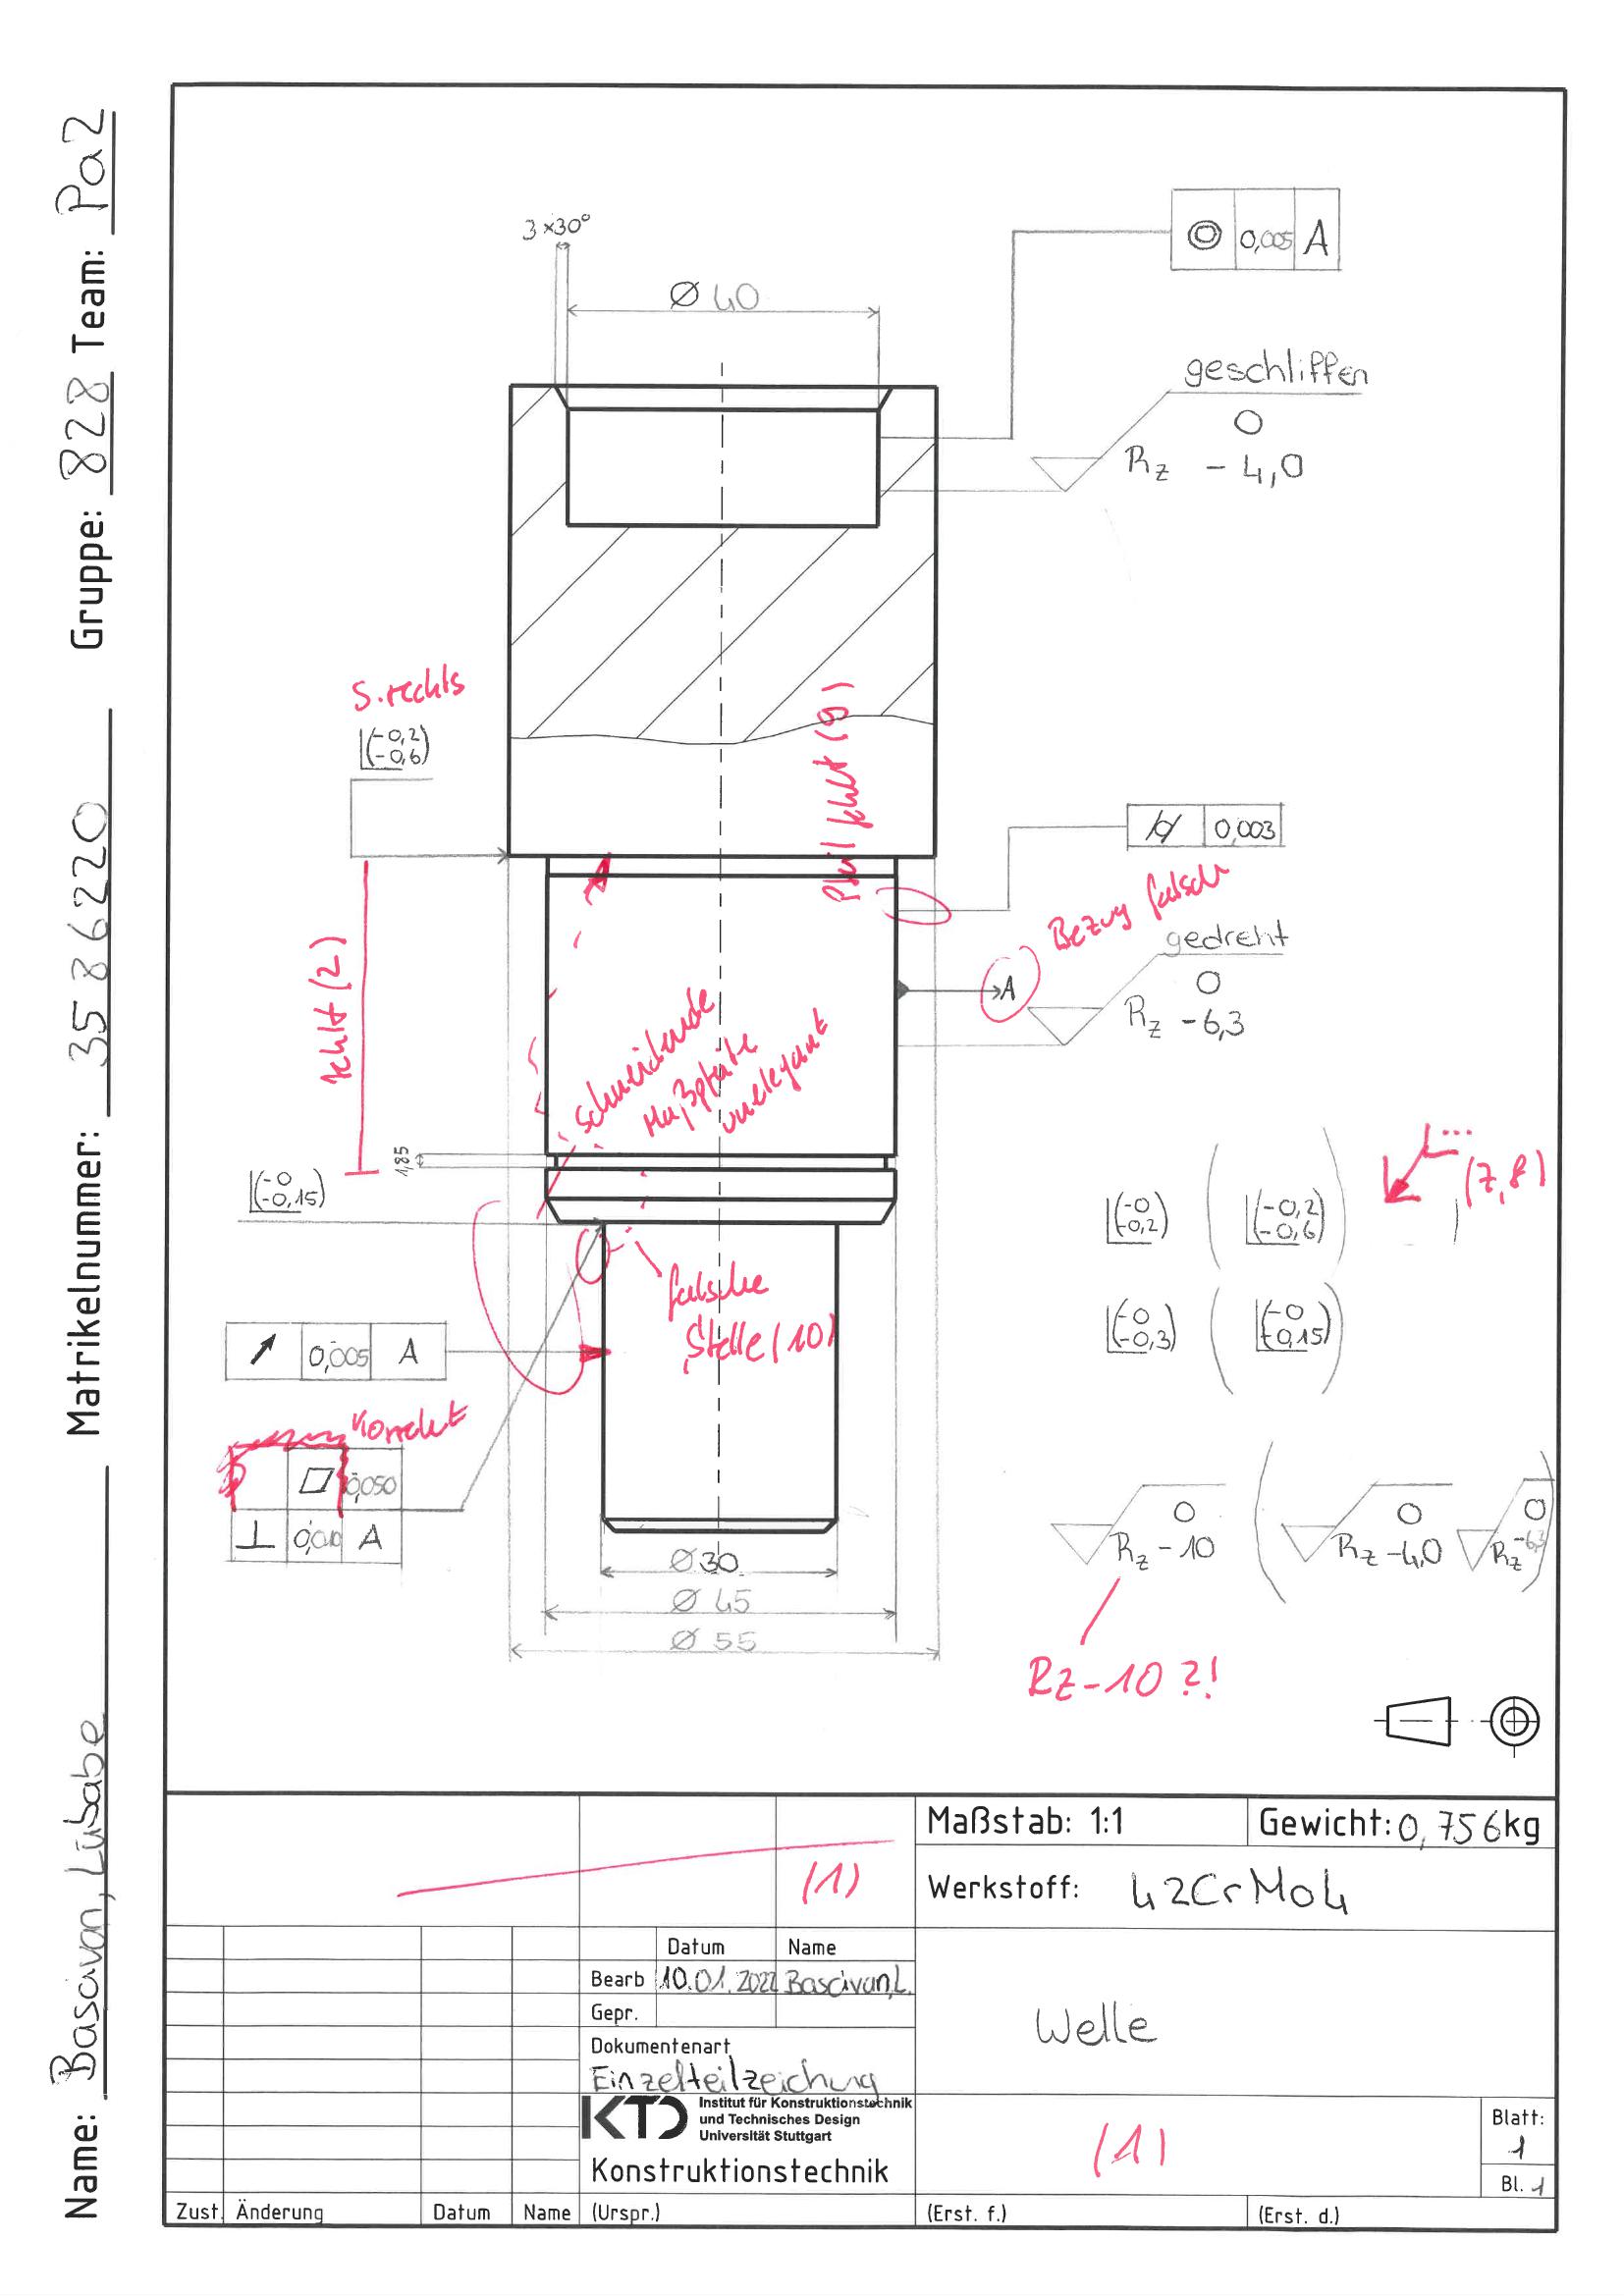 Name: Basaivan, Lübabe Matrikelnummer: 3586220 Gruppe: 828 Team: Pa2
3×30°
Ø 40
◎ 0,005 A
geschliffen
0
Rz - 4,0
S. rechts
(-0,2
-0,6)
Pfeil fehlt (9)
⌭ 0,003
Bezug falsch
A
gedreht
0
Rz -6,3
fehlt (2)
schneidende
Maßpfeile
unelegant
1,85
(-0
-0,15)
...
(7,8)
(-0
-0,2)
(-0,2
-0,6)
(-0
-0,3)
(-0
-0,15)
falsche
Stelle (10)
↗ 0,005 A
Korrekt
▱ 0,050
⊥ A
0
Rz - 10
0
Rz -4,0
0
Rz -6,3
Rz-10 ?!
Ø30
Ø 45
Ø 55
Maßstab: 1:1
Gewicht: 0,756kg
(1)
Werkstoff: 42CrMo4
Datum Name
Bearb 10.01.2022 Basaivan,L.
Gepr.
Dokumentenart
Einzelteilzeichung
Welle
KTD Institut für Konstruktionstechnik
und Technisches Design
Universität Stuttgart
Konstruktionstechnik
(1)
Blatt:
1
Bl. 1
Zust. Änderung Datum Name (Urspr.) (Erst. f.) (Erst. d.)